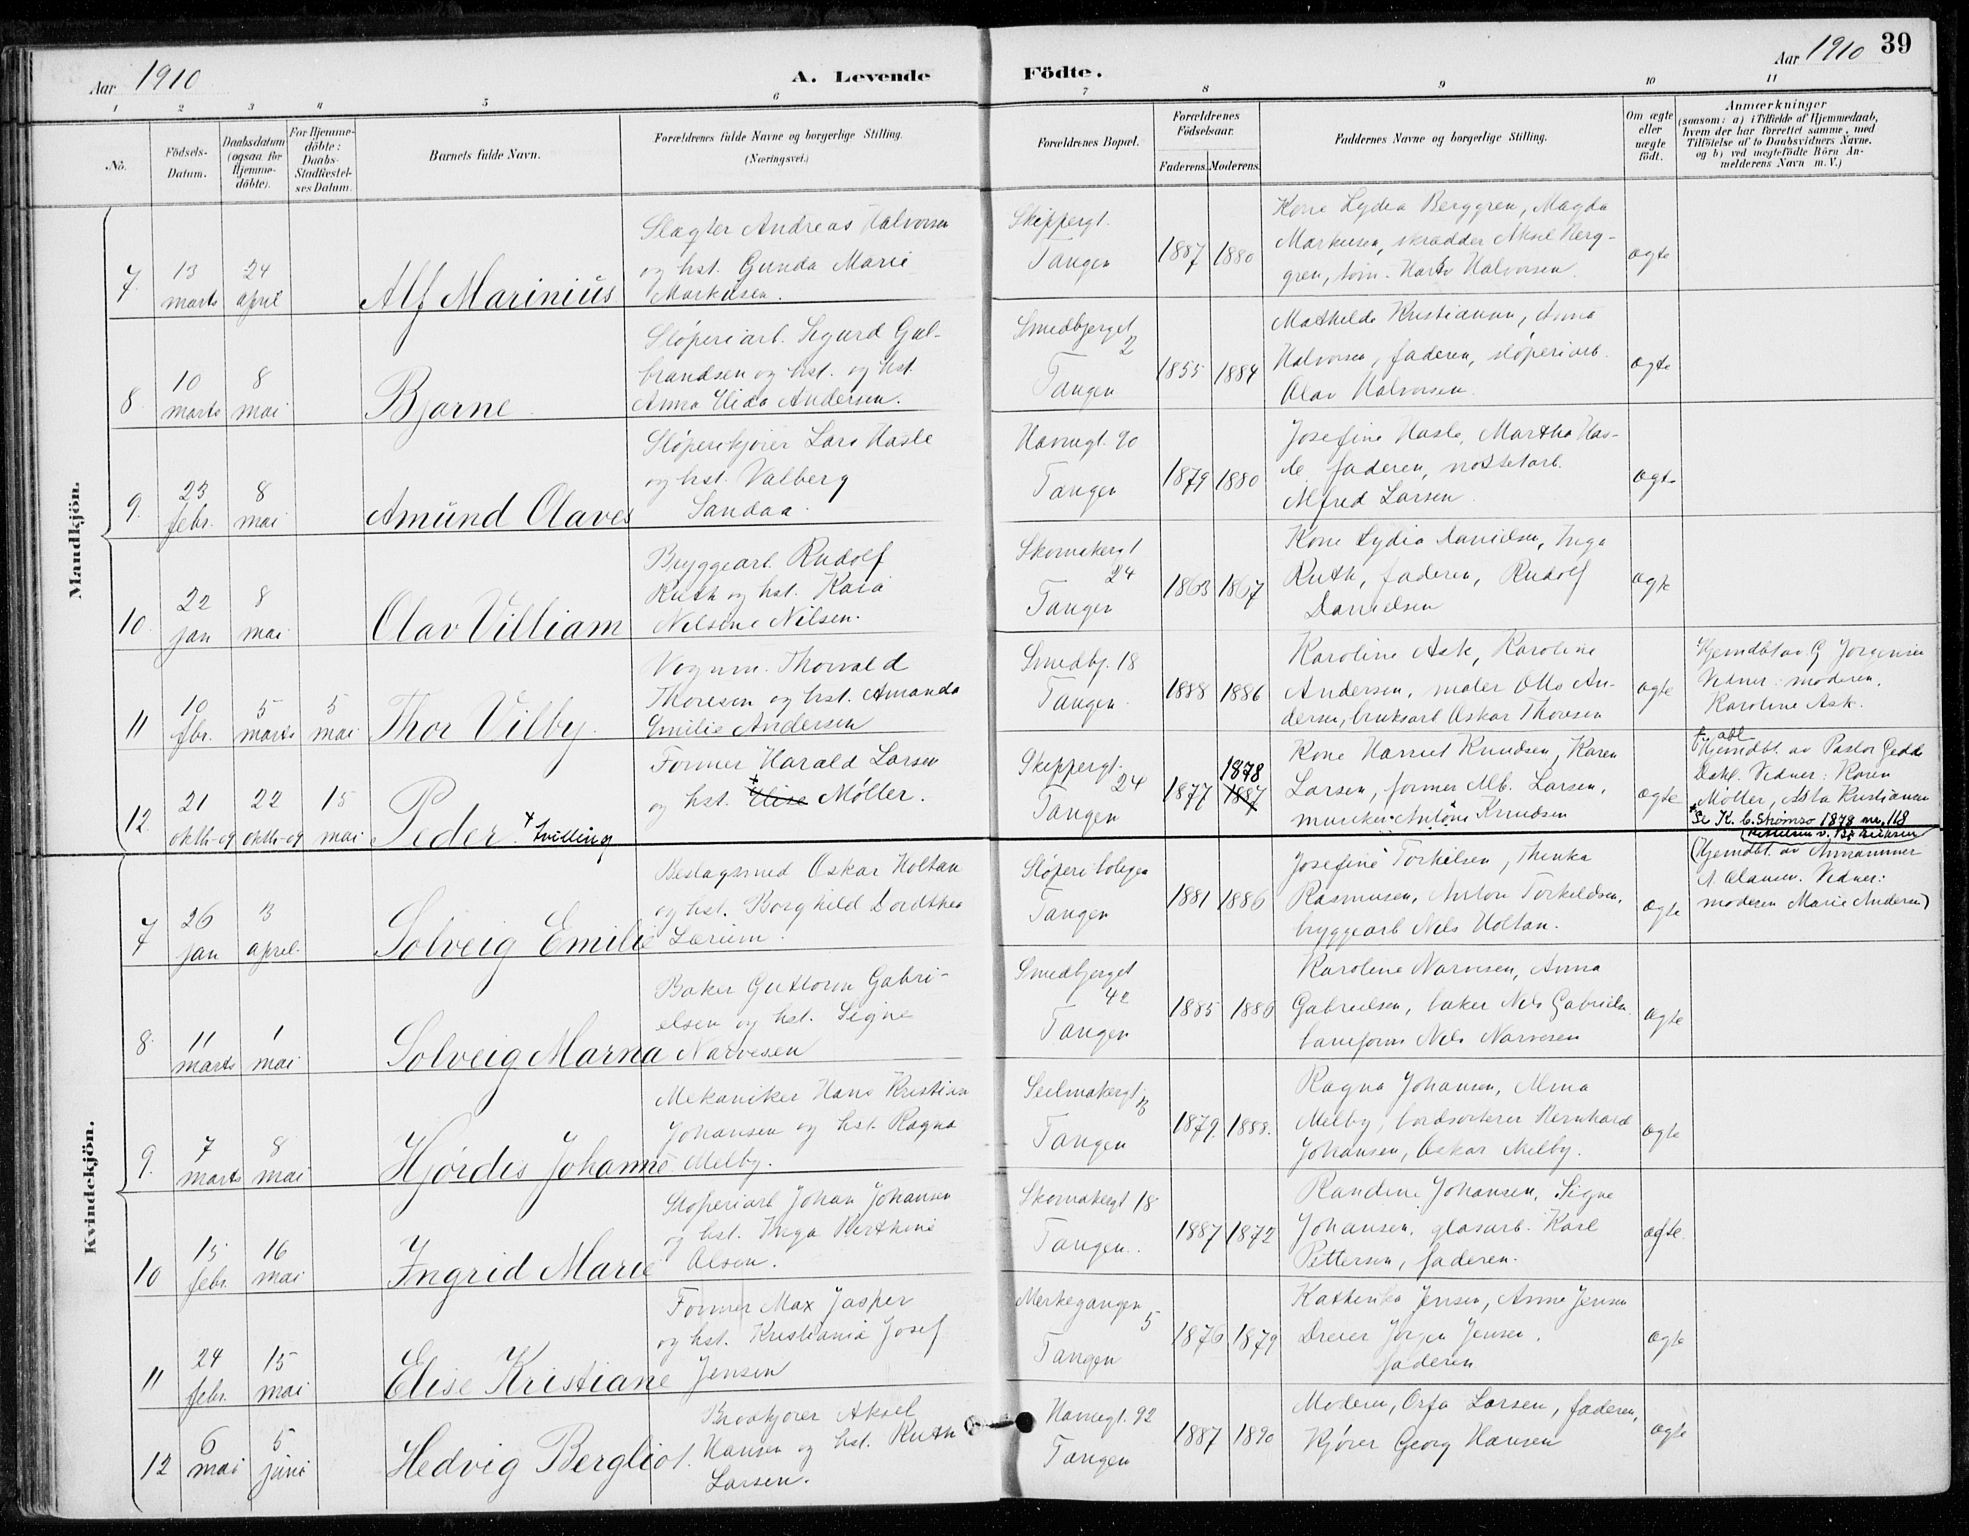 Aar 1910
A. Levende Födte.
Aar 1910 39
1 2 3 4 5 6 7 8 9 10 11
No.
Födsels-Datum.
Daabsdatum (ogsaa for Hjemmedöbte).
For Hjemmedöbte: Daabs-Stadfæstelses Datum.
Barnets fulde Navn.
Forældrenes fulde Navne og borgerlige Stilling.
(Næringsvei.)
Forældrenes Bopæl.
Forældrenes Födselsaar.
Faderens. Moderens.
Faddernes Navne og borgerlige Stilling.
Om ægte eller uægte födt.
Anmærkninger
(saasom: a) i Tilfælde af Hjemmedaab,
hvem der har forrettet samme, med
Tilföielse af to Daabsvidners Navne,
og b) ved uægtefödte Börn Anmelderens Navn m. V.)
Mandkjön.
7. 13 marts 24 april Alf Marinius
Slagter Andreas Halvorsen
og hst. Gunda Marie
Markusen.
Skippergt.
Tangen
1887 1880
Kone Lydia Berggren, Magda
Markusen, skrædder Aksel Berggren, Halvorsen.
ægte
8. 10 marts 8 mai Bjarne
Støperiarb. Sigurd Gulbrandsen og hst. og hst.
Anna Andersen.
Smedbjerget
2
Tangen
1855 1884
Mathilde Kristiansen, Anna
Halvorsen, faderen, støperiarb.
Olav Halvorsen.
ægte
9. 23 febr. 8 mai Amund Olaves
Støperikjører Lars Hasle
og hst. Valberg
Sandaa.
Havnegt. 90
Tangen
1879 1880
Josefine Hasle, Martha Hasle, faderen,
Alfred Larsen.
ægte
10. 22 jan 8 mai Olav Villiam
Bryggearb. Rudolf
Ruth og hst. Kaia
Nilsine Nilsen.
Skomakergt
24
Tangen
1863 1867
Kone Lydia Danielsen, Inga
Ruth, faderen, Rudolf
Danielsen
ægte
11 10 fbr. 5 marts 5 mai Thor Vilby.
Vognm. Thorvald
Thoresen og hst. Amanda
Emilie Andersen
Smedbj. 18
Tangen.
1888 1886
Karoline Ask, Karoline
Andersen, maler Otto Andersen, bruksarb Oskar Thoresen
ægte
Hjemdbt av G Jørgensen
Vidner: moderen,
Karoline Ask.
12. 21 okth-09 22 okth-09 15 mai Peder. + tvilling
Former Harald Larsen
og hst. + Elise Møller.
Skippergt.
24
Tangen
1877 1878 1887
Kone Harriet Knudsen, Karen
Larsen, former Alb. Larsen,
musiker Anton Knudsen
ægte
Hjemdbt. av Pastor Gedde
Dahl. Vidner: Karen
Møller, Asta Kristiansen
Se K. b. Strømsø 1878 nr. 118
Kvindekjön.
7 26 jan 3 april. Solveig Emilie
Beslagsmed Oskar Holtan
og hst. Borghild Dorothea
Lærum.
Støperiboligen
Tangen
1881 1886
Josefine Torkilsen, Thinka
Rasmusen, Anton Torkildsen,
bryggearb Nils Holtan.
ægte
(Hjemdbt. av
A. Olausen. Vidner:
moderen Marie Andersen)
8. 11 marts 1 mai Solveig Marna
Baker Guttorm Gabrielsen og hst. Signe
Narvesen
Smedbjerget
42
Tangen
1885 1886
Karoline Narvesen, Anna
Gabrielsen, baker Nils Gabrielsen
baneform Nils Narvesen
ægte
9. 7 marts 8 mai Hjørdis Johanne
Mekaniker Hans Kristian
Johansen og hst. Ragna
Melby.
Seilmakergt.
Tangen
1879. 1888.
Ragna Johansen, Alma
Melby, bordsorterer Bernhard
Johansen, Oskar Melby.
ægte
10 15 febr. 16 mai Ingrid Marie
Støperiarb Johan Johansen
og hst. Inga Berthine
Olsen.
Skomakergt 18
Tangen.
1887 1872
Randine Johansen, Signe
Johansen, glasarb. Karl
Pettersen, faderen.
ægte.
11 24 febr. 15 mai Elise Kristiane
Former Max Jasper
og hst. Kristiania Josef
Jensen
Merkegangen
5
Tangen
1876 1879
Kathinka Jensen, Anne Jensen
Dreier Jørgen Jensen.
faderen
ægte
12 6 mai 5 juni Hedvig Bergliot.
Brødkjører Aksel
Hansen og hst. Ruth
Larsen.
Havnegt. 92
Tangen
1887 1890
Moderen, Orfa Larsen, faderen,
kjører Georg Hansen
ægte